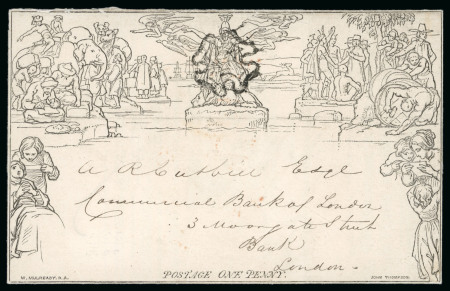 A R Cutbill Esqre
Commercial Bank of London
3 Moorgate Street
Bank
London.
POSTAGE ONE PENNY.
W. MULREADY. R.A.
JOHN THOMPSON